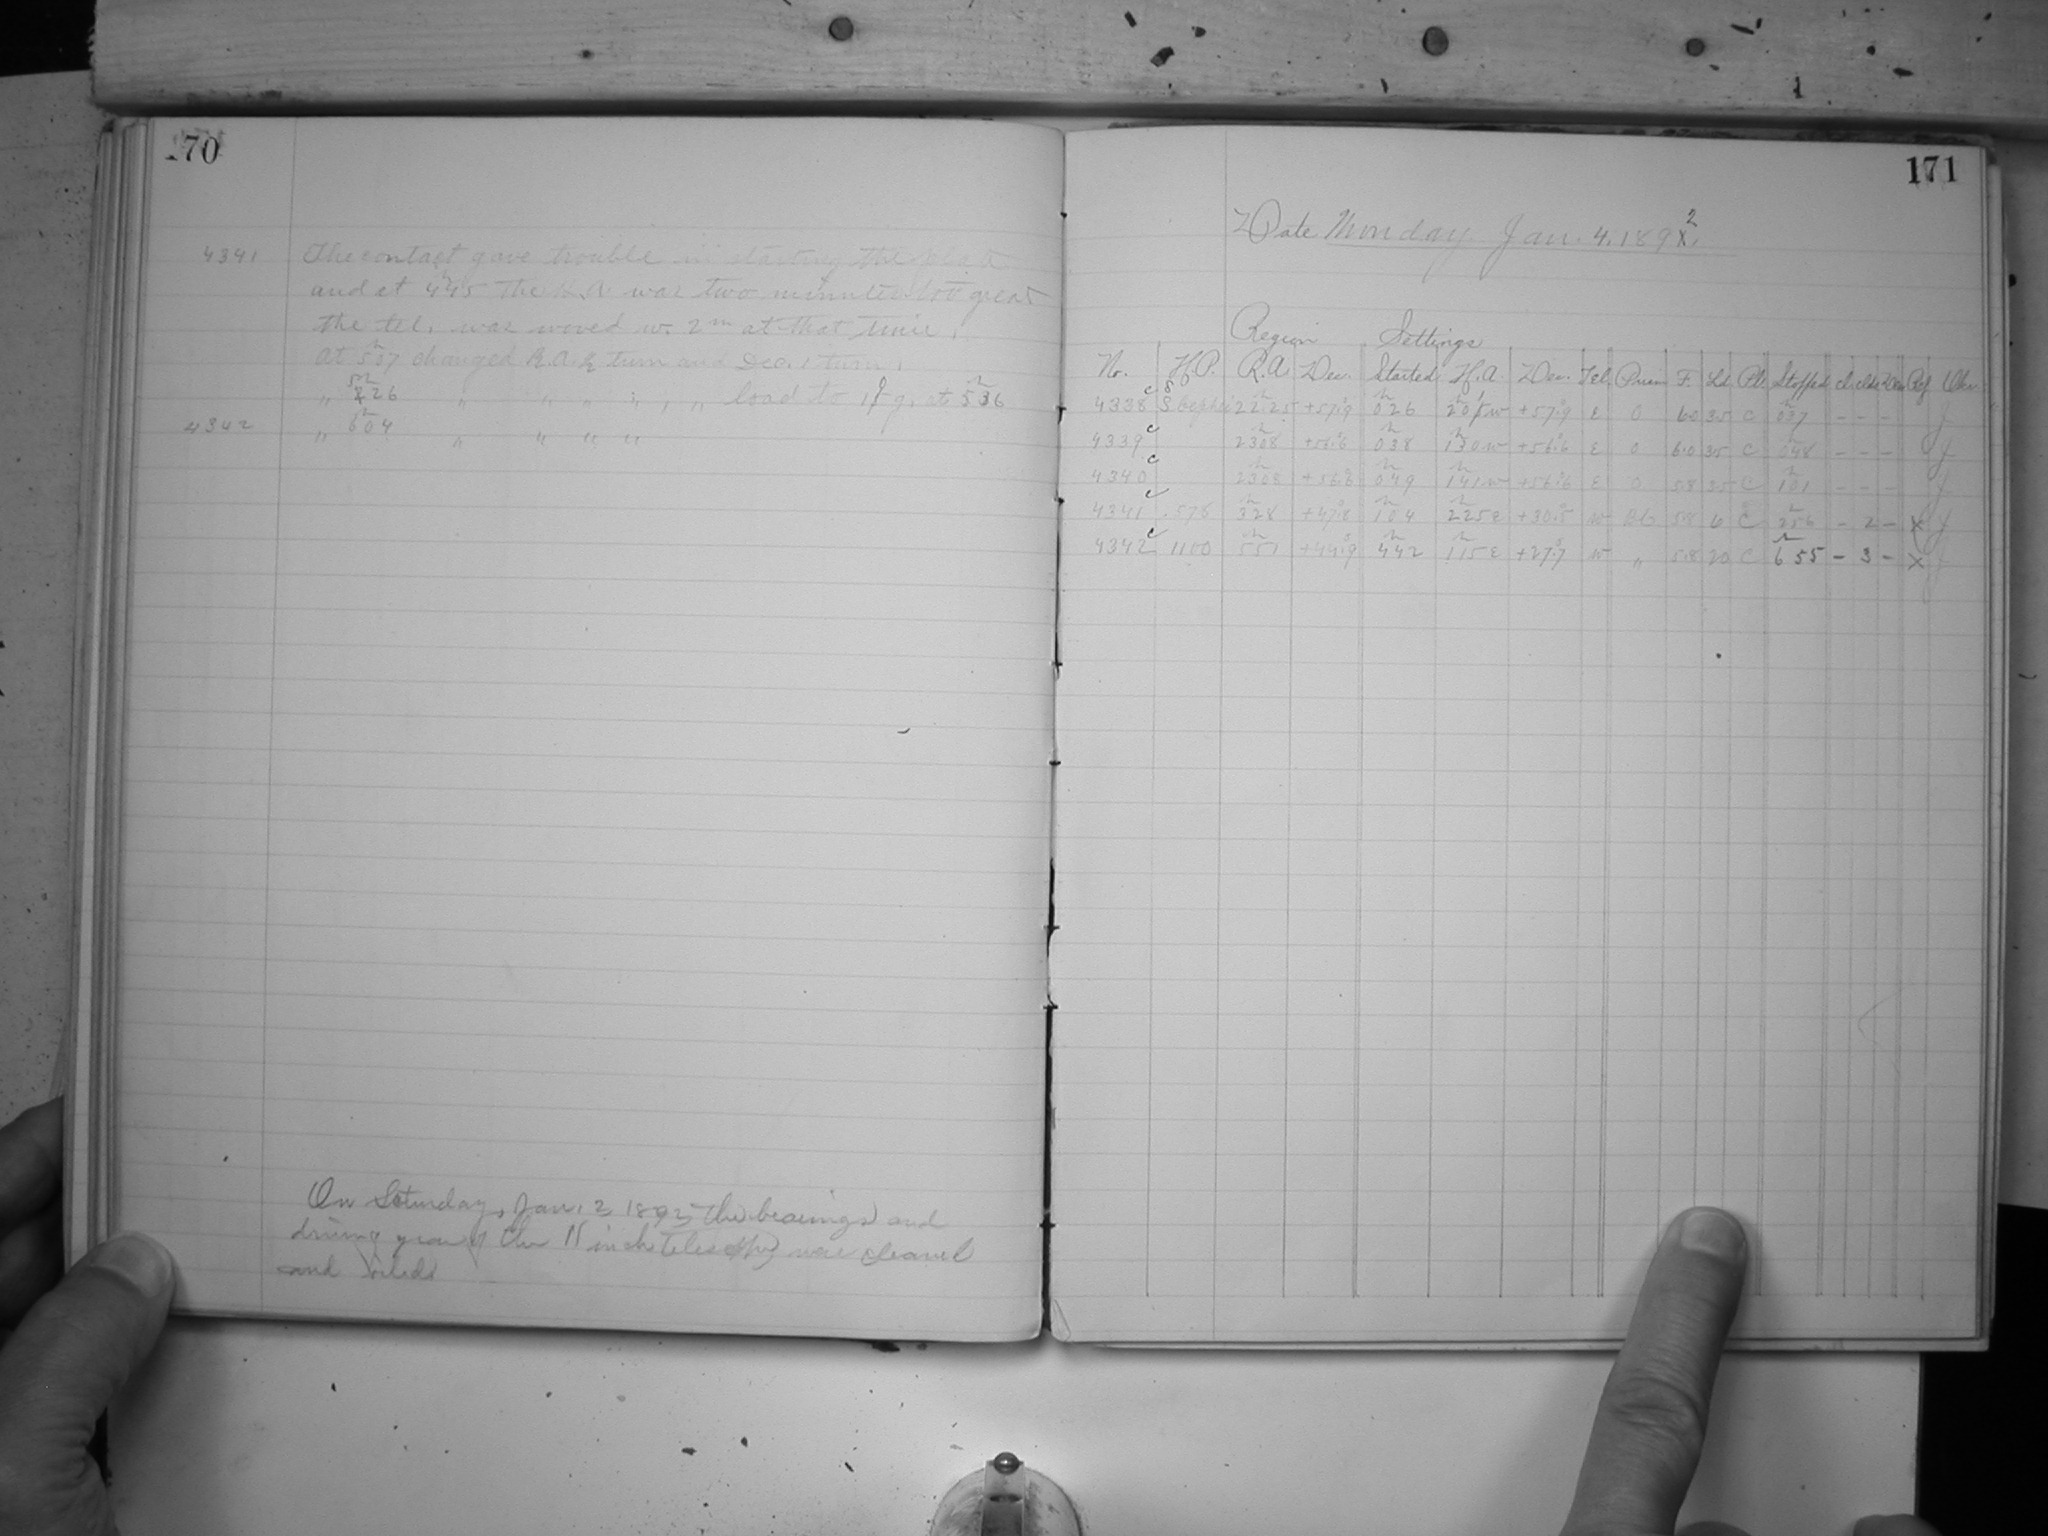 170
4341 The contact gave trouble in starting the plate
and at 4h45 the H.A. was two minutes too great
the tel. was moved w. 2m at that time.
At 5h07 changed R.A. ½ turn and Dec. 1 turn.
" 5h26 " " " " , " load to g, at 5h36
4342 " 6h04 " " " "
On Saturday, Jan. 2 1892 the bearings and
driving gear of the 11 inch telescope was cleaned
and oiled.
171
Date Monday. Jan. 4. 1892
Region Settings
No. H.P. R.A. Dec. Started H.A. Dec. Tel. Prism F. Ld Pl. Stopped Cl. Ref Obs.
4338 c δ Cephei 22h25 +57°.9 0h26 w +57°.9 E 0 60 35 C 0h37 - - -
4339 c 23h08 +56°.6 0h38 1h30 w +56°.6 E 0 6.0 35 C 0h48 - - -
4340 c 23h08 +56°.6 0h49 1h41 w +56°.6 E 0 58 35 C 1h01 - - -
4341 c 578 3h28 +47°.8 1h04 2h25 E +30°.5 w 58 6 C 2h56 - 2 - X
4342 c 1100 5h51 +44°.9 4h42 1h15 E +27°.7 w " 5.8 20 C 6h55 - 3 - X